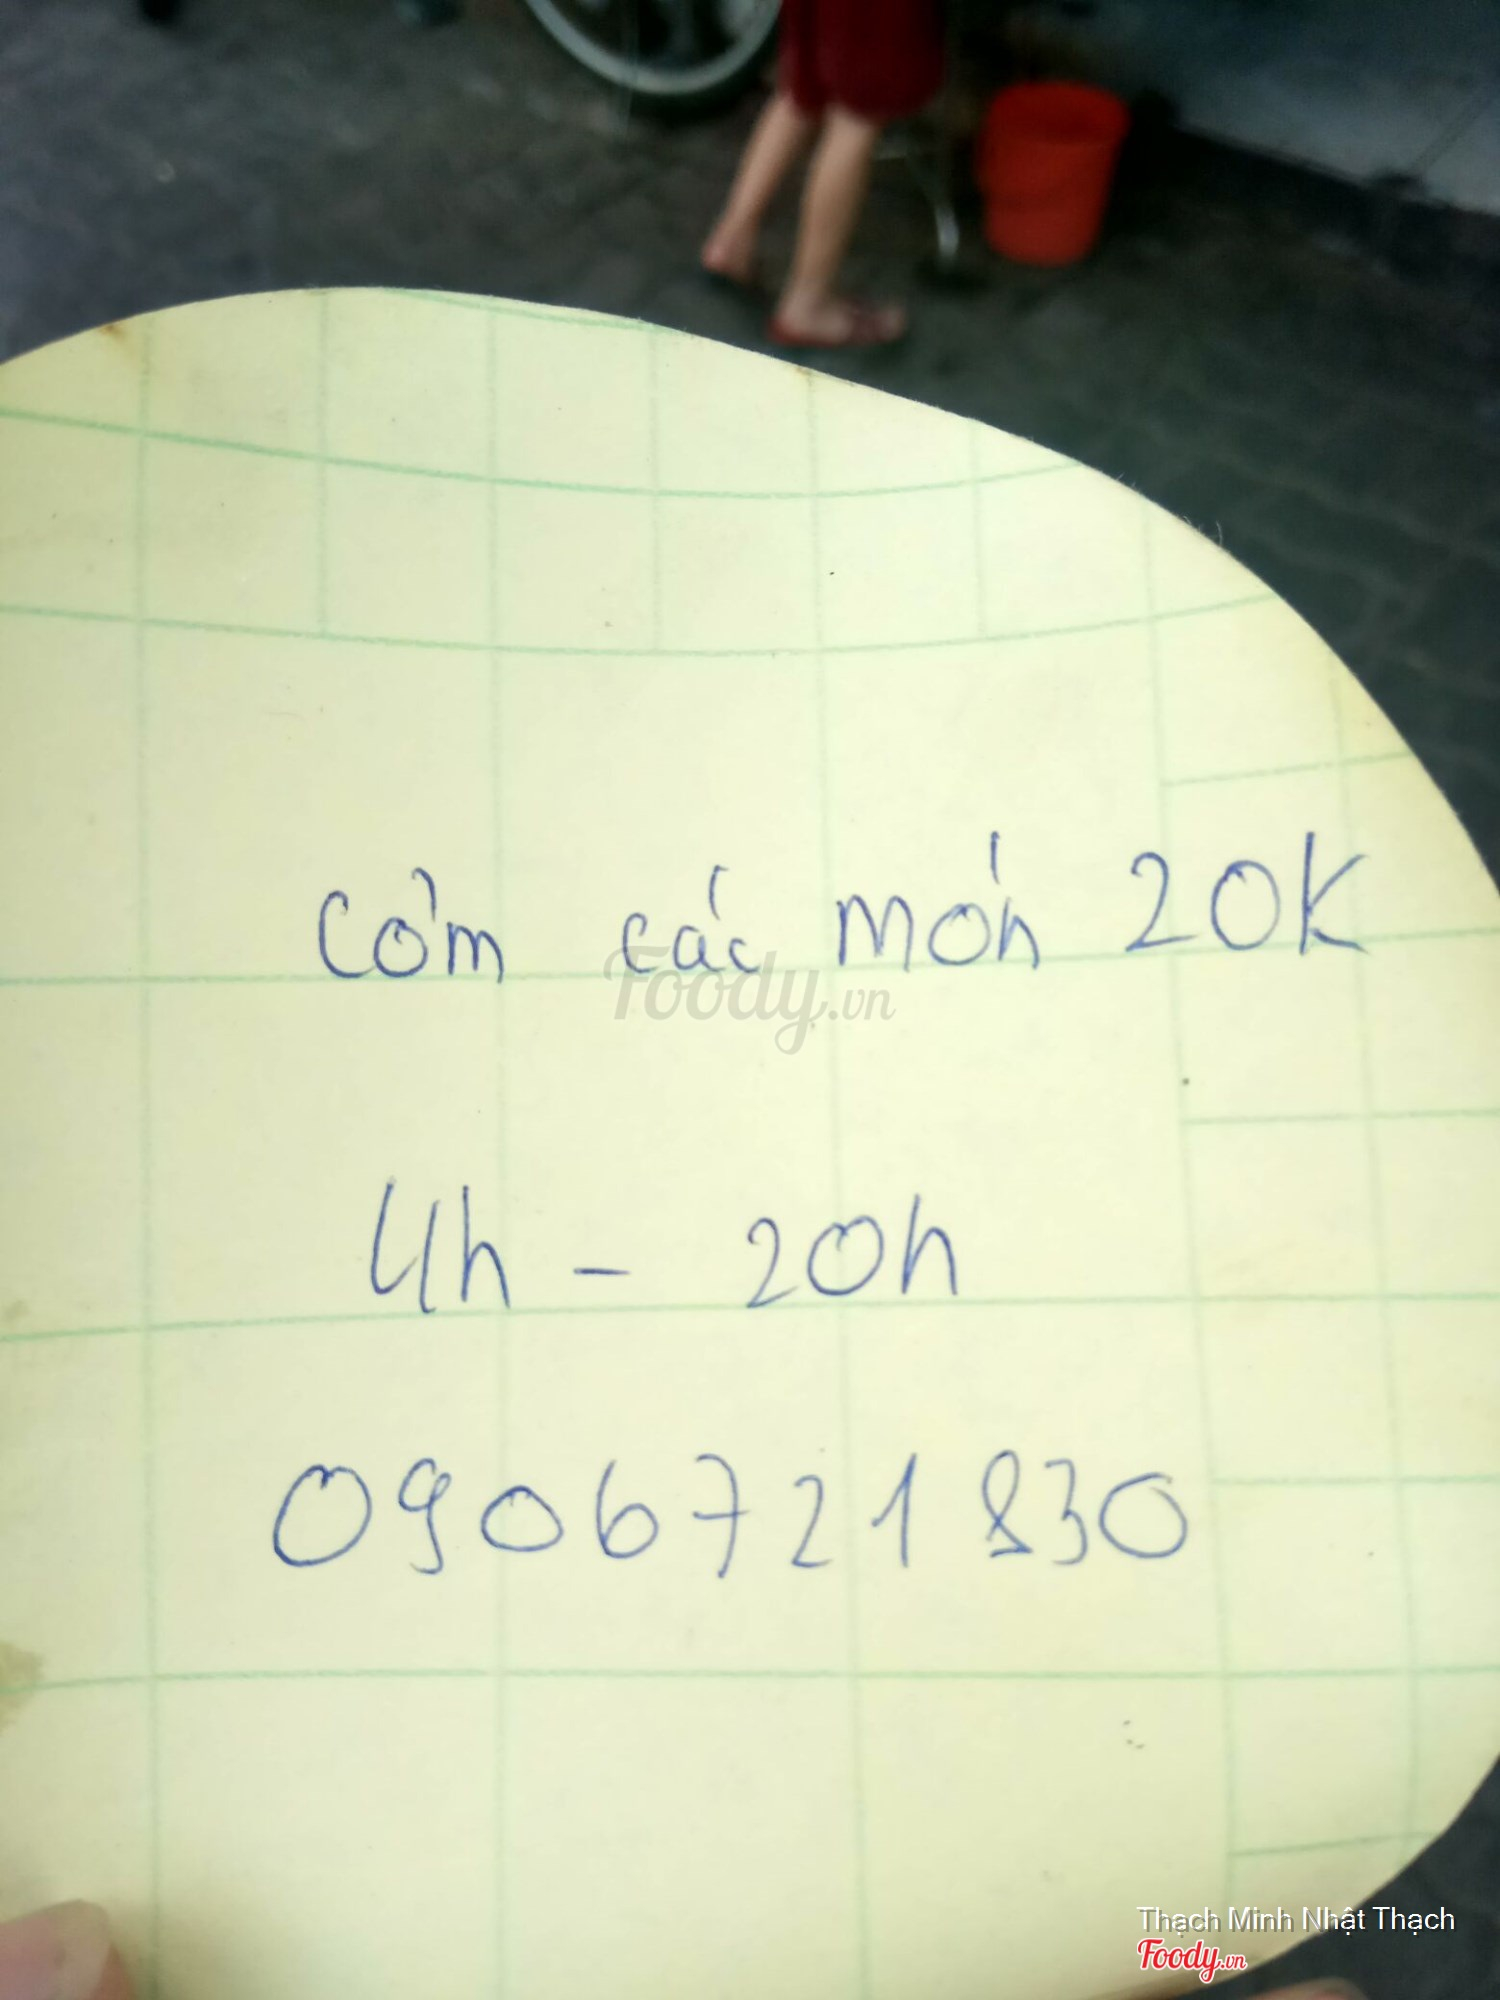 Cơm các món 20K
Foody.vn
4h - 20h
0906721830
Thạch Minh Nhật Thạch
Foody.vn